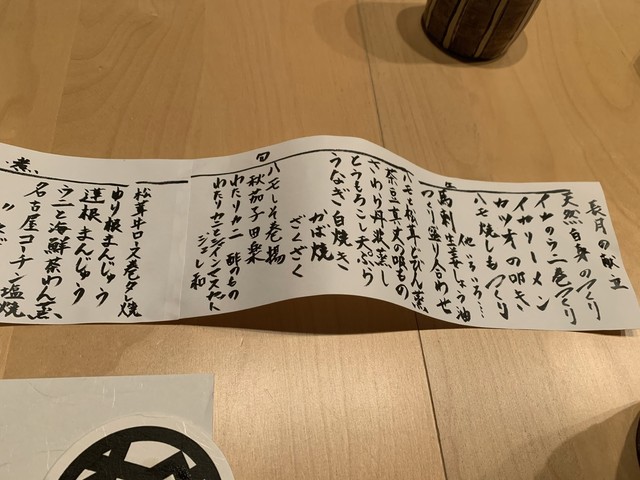 長月の献立
天然白身のつくり
イカのウニ巻つくり
イカソーメン
カツオの叩き
ハモ焼しもつくり
他いろいろ…
馬刺 生姜しょう油
つくり盛り合わせ
ハモと松茸どびん蒸し
茶豆真丈の吸もの
さわら丹波蒸し
とうもろこし天ぷら
うなぎ白焼き
かば焼
ざくざく
旬
ハモしそ巻揚
秋茄子田楽
わたりカニ酢のもの
わたりガニとシャインマスカット
ジュレ和
松茸牛ロース巻タレ焼
ゆり根まんじゅう
蓮根まんじゅう
ウニと海鮮茶わん蒸
名古屋コーチン塩焼
煮